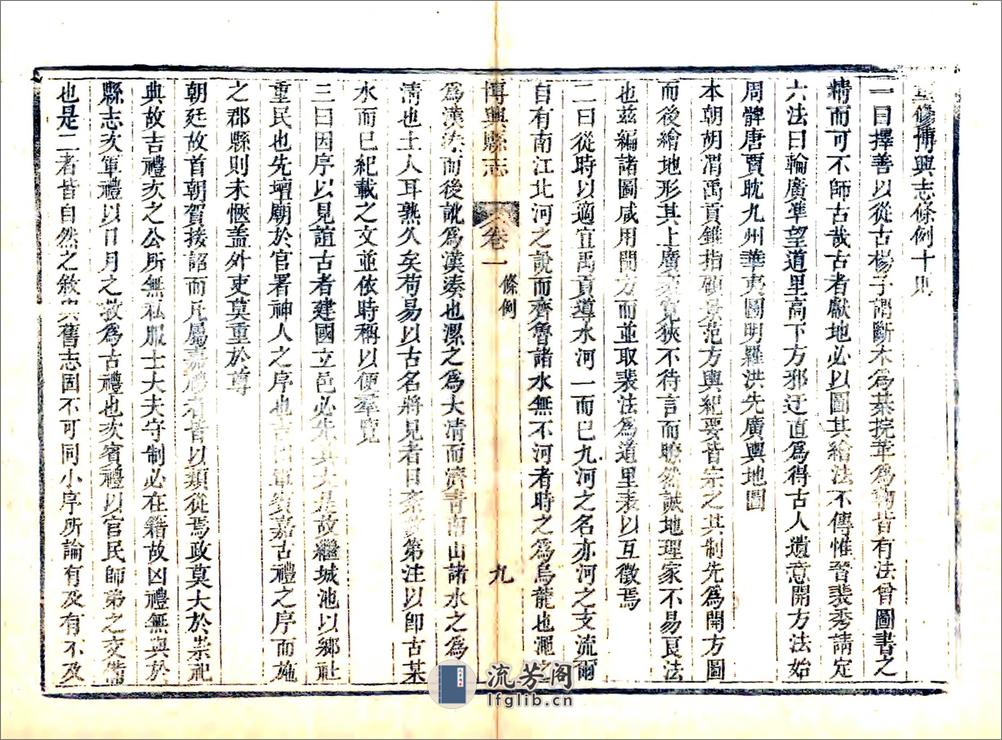 重修博興志條例十則
一曰擇善以從古楊子謂斷木爲棊捖革爲鞠皆有法曾圖書之
精而可不師古哉古者獻地必以圖其繪法不傳惟晉裴秀請定
六法曰輪廣準望道里高下方邪迂直爲得古人遺意開方法始
周髀唐賈耽九州華夷圖明羅洪先廣輿地圖
本朝胡渭禹貢錐指顧景范方輿紀要皆宗之其制先爲開方圖
而後繪地形其上廣寬狹不待言而瞭然誠地理家不易良法
也茲編諸圖咸用開方而並取裴法爲道里表以互徵焉
二曰從時以適宜禹貢導水河一而已九河之名亦河之支流爾
自有南江北河之說而齊魯諸水無不河者時之爲烏龍也澠之
博興縣志 卷一 條例 九
爲漢溱而後訛爲漢湊也漯之爲大清而濟青南山諸水之爲
清也土人耳熟久矣苟易以古名將見者目紊第注以即古某
水而已紀載之文並依時稱以便羣覽
三曰因序以見誼古者建國立邑必先其大是故繼城池以鄉社
重民也先壇廟於官署神人之序也吉凶軍賓嘉古禮之序而施
之郡縣則未愜蓋外吏莫重於尊
朝廷故首朝賀接詔而凡屬嘉禮者皆以類從焉政莫大於崇祀
典故吉禮次之公所無私服士大夫守制必在籍故凶禮無與於
縣志次軍禮以日月之救爲古禮也次賓禮以官民師弟之交備
也是二者皆自然之敘與舊志固不可同小序所論有及有不及
流芳阁
lfglib.cn